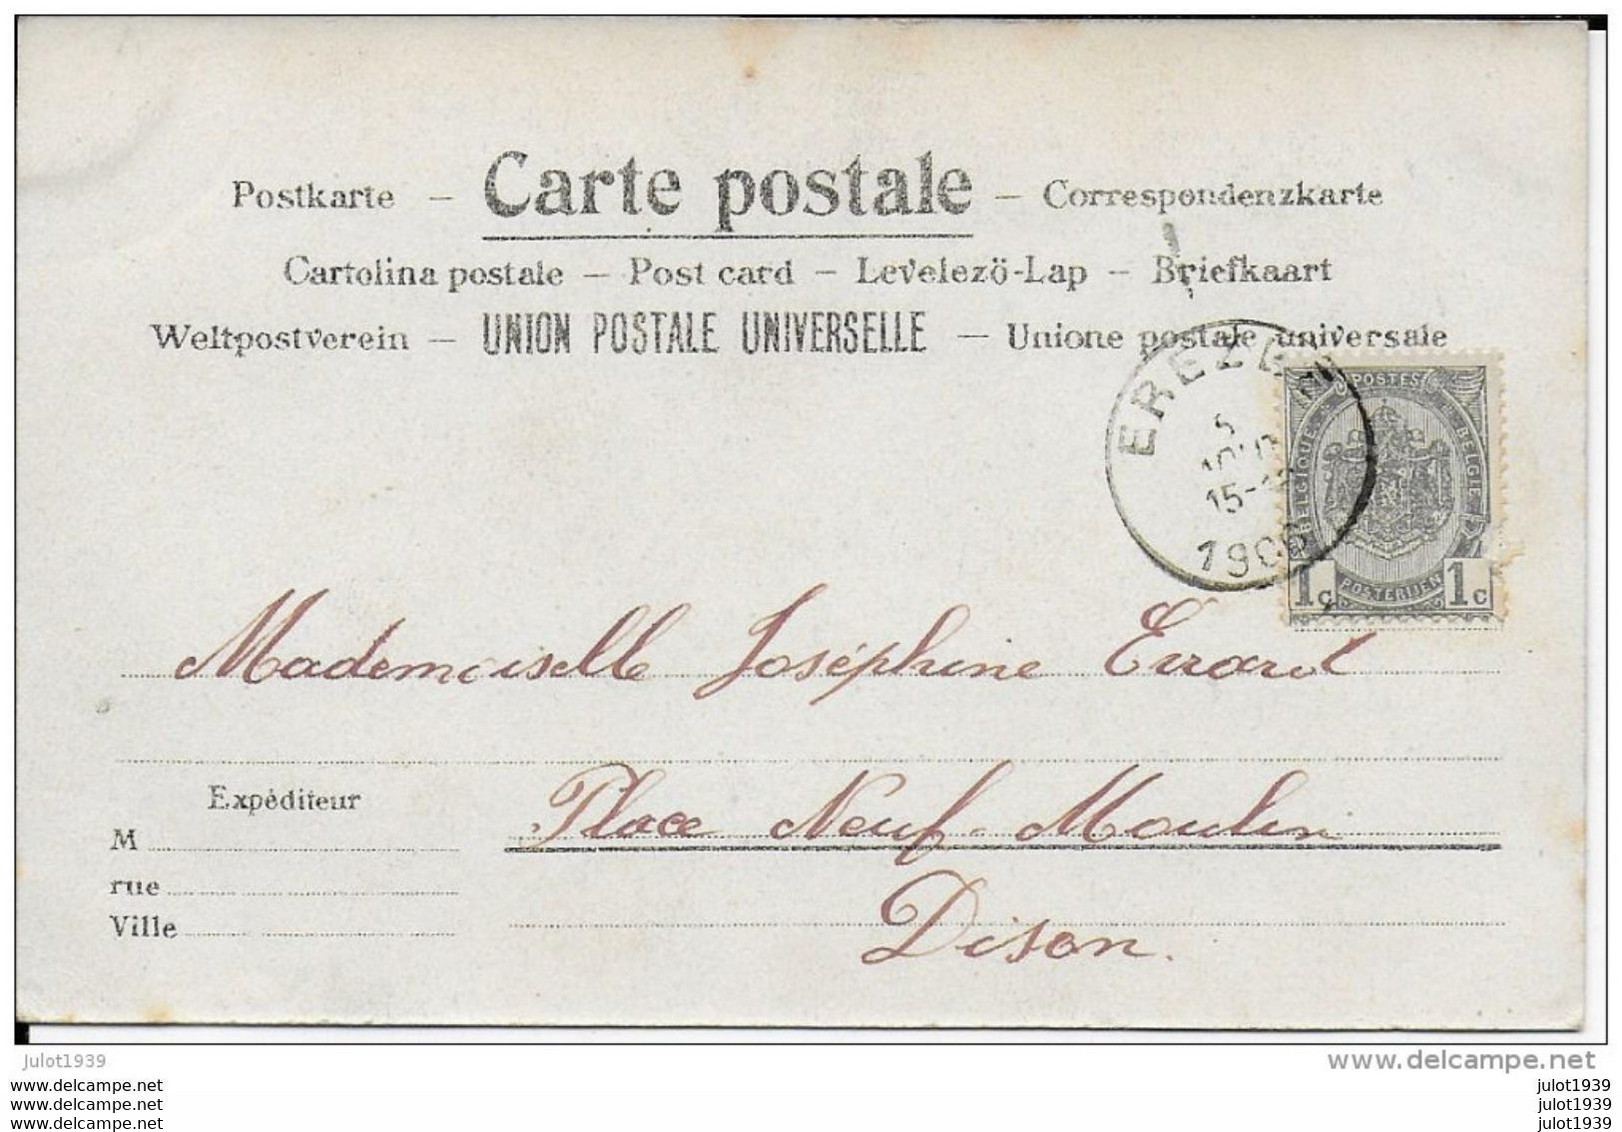 Postkarte – Carte postale – Correspondenzkarte
Cartolina postale – Post card – Levelezö-Lap – Briefkaart
Weltpostverein – UNION POSTALE UNIVERSELLE – Unione postale universale
EREZÉE
5
AOUT
15-
1906
POSTES
BELGIQUE BELGIE
1c POSTERIJEN 1c
Mademoiselle Joséphine Errard
Expéditeur
Place Neuf-Moulin
M
rue
Dison.
Ville
julot1939
www.delcampe.net
www.delcampe.net
www.delcampe.net
www.delcampe.net
julot1939
julot1939
julot1939